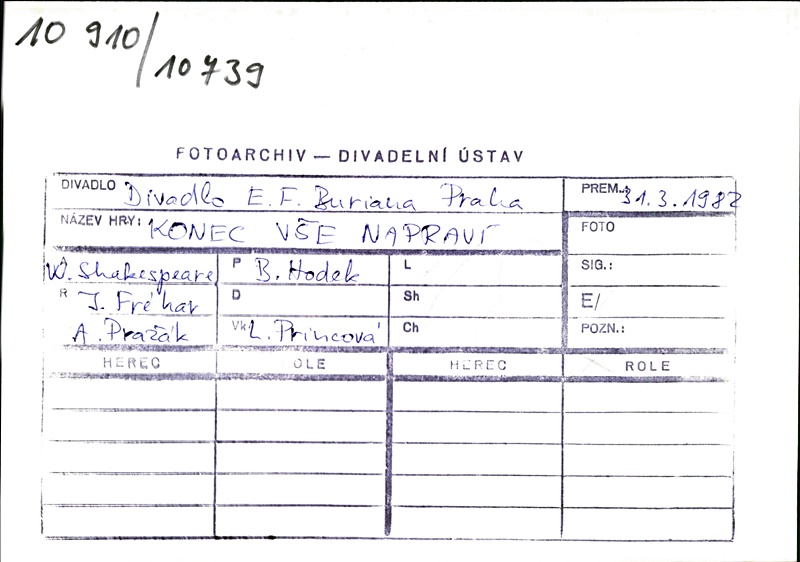 10 910/
10 739
FOTOARCHIV — DIVADELNÍ ÚSTAV
DIVADLO Divadlo E. F. Buriana Praha PREM.: 31. 3. 1982
NÁZEV HRY: KONEC VŠE NAPRAVÍ FOTO
A W. Shakespeare P B. Hodek L SIG.:
R J. Fréhar D Sh E/
A. Pražák Vk L. Princová Ch POZN.:
HEREC OLE HEREC ROLE